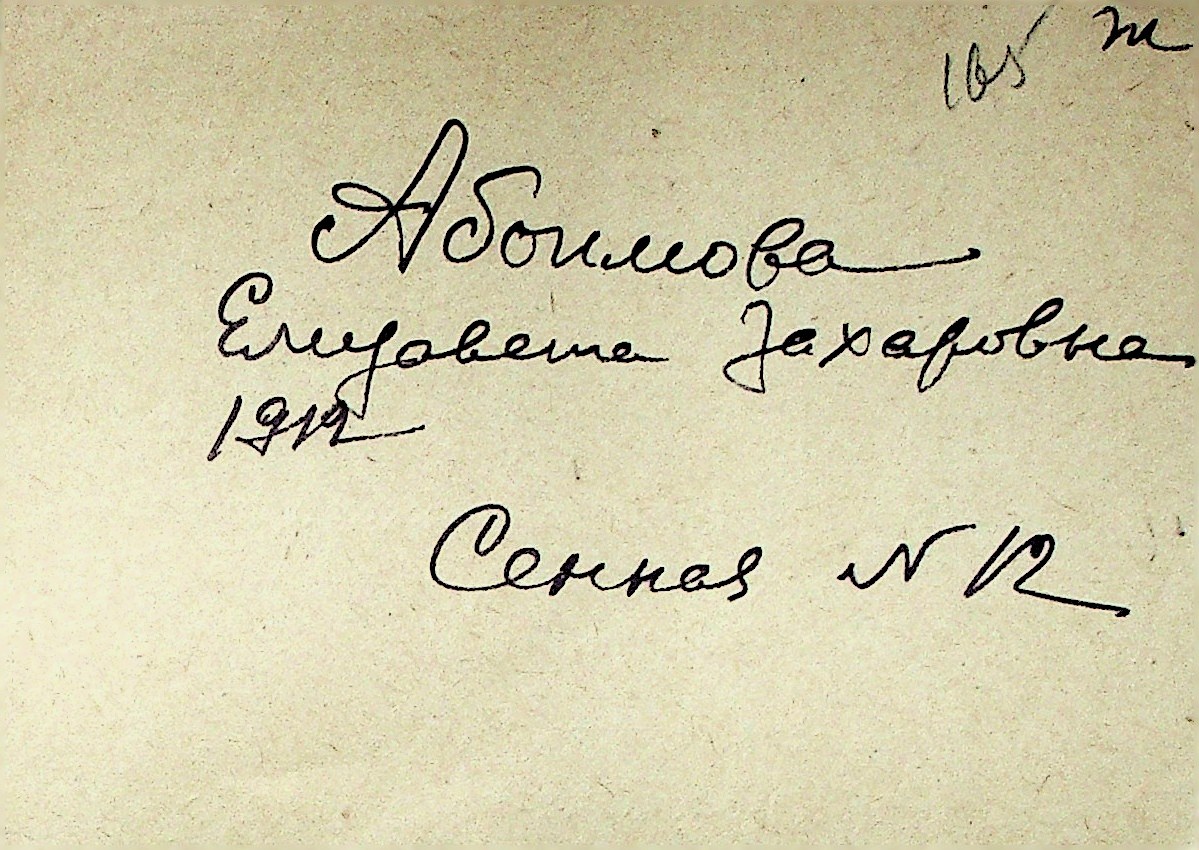 165 т
Абоимова
Елизавета Захаровна
1912
Сенная N 12